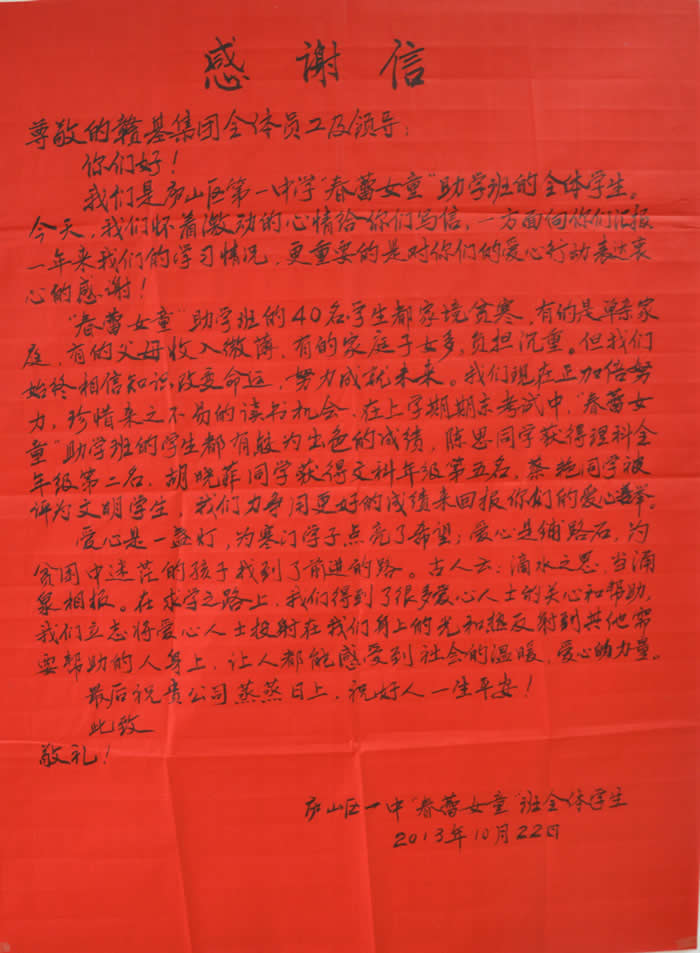 感谢信
尊敬的赣基集团全体员工及领导：
你们好！
我们是庐山区第一中学“春蕾女童”助学班的全体学生。
今天，我们怀着激动的心情给你们写信，一方面向你们汇报
一年来我们的学习情况，更重要的是对你们的爱心行动表达衷
心的感谢！
“春蕾女童”助学班的40名学生都家境贫寒，有的是单亲家
庭，有的父母收入微薄，有的家庭子女多，负担沉重。但我们
始终相信知识改变命运，努力成就未来。我们现在正加倍努
力，珍惜来之不易的读书机会，在上学期期末考试中，“春蕾女
童”助学班的学生都有较为出色的成绩，陈思同学获得理科全
年级第二名，胡晓菲同学获得文科年级第五名，蔡艳同学被
评为文明学生，我们力争用更好的成绩来回报你们的爱心善举。
爱心是一盏灯，为寒门学子点亮了希望；爱心是铺路石，为
贫困中迷茫的孩子找到了前进的路。古人云：滴水之恩，当涌
泉相报。在求学之路上，我们得到了很多爱心人士的关心和帮助，
我们立志将爱心人士投射在我们身上的光和热反射到其他需
要帮助的人身上，让人都能感受到社会的温暖，爱心的力量。
最后祝贵公司蒸蒸日上，祝好人一生平安！
此致
敬礼！
庐山区一中“春蕾女童”班全体学生
2013年10月22日